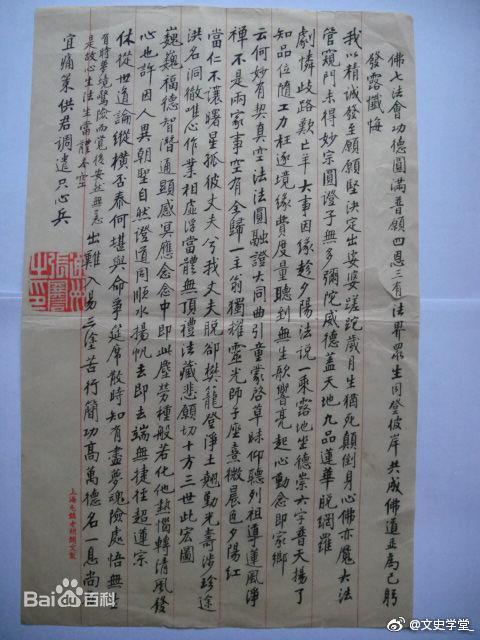 佛七法會功德圓滿普願四恩三有法界眾生同登彼岸共成佛道並為己躬
發露懺悔
我以精誠發至願願堅決定出娑婆蹉跎歲月生猶死顛倒身心佛亦魔大法
管窺門未得妙宗圓證子無多彌陀威德蓋天地九品蓮華脫網羅
劇憐歧路歎亡羊大事因緣趁夕陽法說一乘露地坐德崇六字普天揚了
知品位隨工力枉逐境緣費度量聽到無生歌響亮起心動念即家鄉
云何妙有契真空法法圓融證大同曲引童蒙啓草昧仰聽列祖導蓮風淨
禪不是兩家事空有全歸一主翁獨擁靈光師子座熹微晨色夕陽紅
當仁不讓曙星孤彼丈夫兮我丈夫脫卻樊籠登淨土翹勤光壽涉珍途
洪名洞徹唯心作業相虛浮當體無頂禮法藏悲願切十方三世此宏圖
巍巍福德智潛通顯感冥應念念中即此塵勞種般若化他熱惱轉清風發
心也許因人異朝聖自然證道同順水揚帆去即去端無捷徑超蓮宗
休從世道論縱橫否泰何堪與命爭筵席散時知有盡夢魂險處悟無生
有時夢境驚險而覺後安然無恙
是故心生法生當體本空
出難入易三塗苦行簡功高萬德名一息尚
宜痛策供君調遣只心兵
Bai百科
@文史学堂_